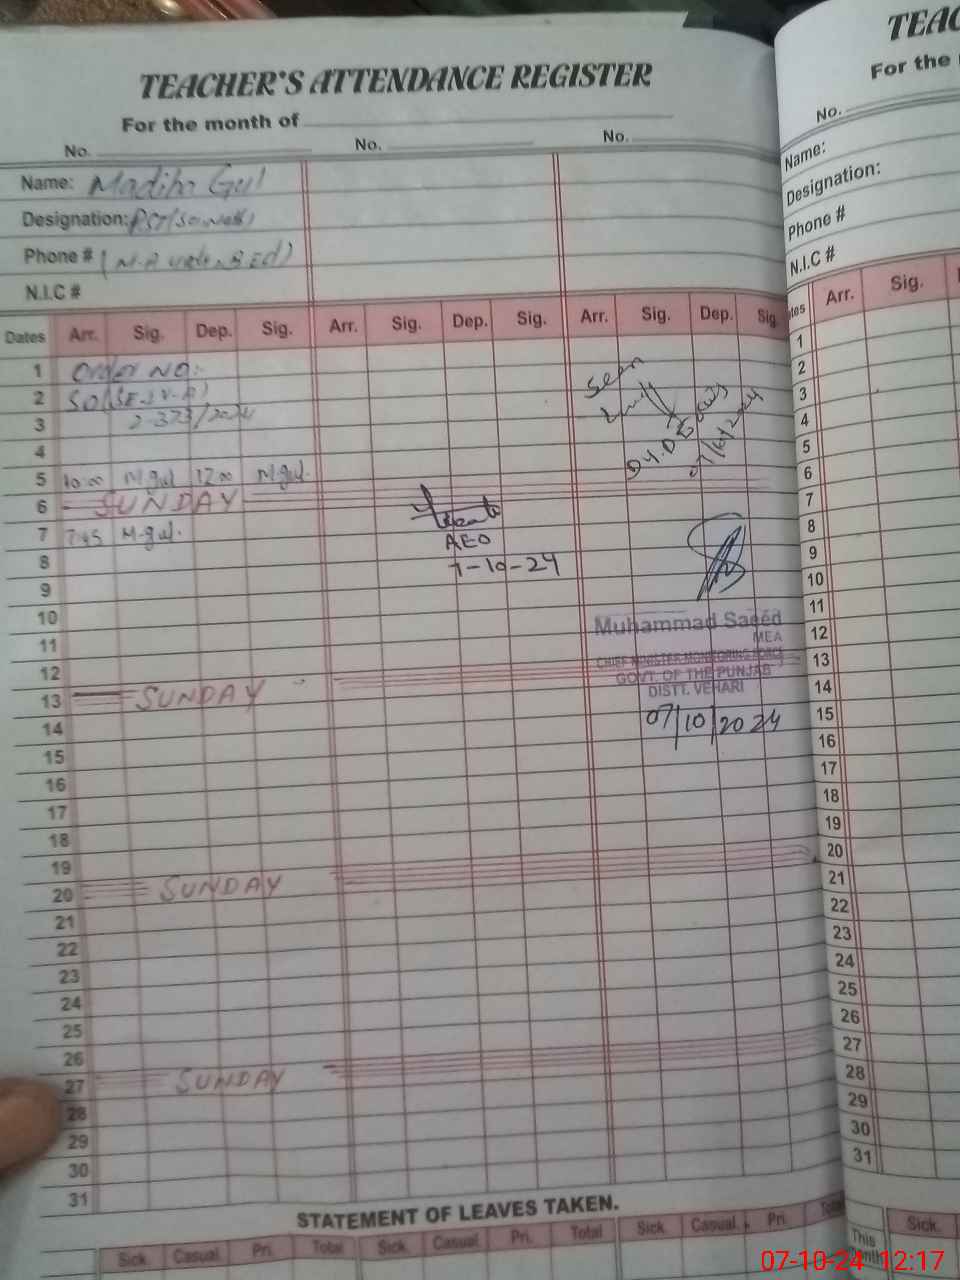 TEACHER'S ATTENDANCE REGISTER
For the month of
No. No. No.
Name: Madiha Gul
Designation: PST
Phone # (M.A B.Ed)
N.I.C #
Dates Arr. Sig. Dep. Sig. Arr. Sig. Dep. Sig. Arr. Sig. Dep. Sig.
1 Order No:-
2 SO(SE-IV-A)
3 2-373/2024
4
5 10:00 M.gul 12:00 M.gul.
6 SUNDAY
7 7:45 M.gul.
8
9
10
11
12
13 SUNDAY
14
15
16
17
18
19
20 SUNDAY
21
22
23
24
25
26
27 SUNDAY
28
29
30
31
Seen
07/10/2024
AEO
7-10-24
Muhammad Saeed
MEA
CHIEF MINISTER MONITORING FORCE
GOVT. OF THE PUNJAB
DISTT. VEHARI
07/10/2024
STATEMENT OF LEAVES TAKEN.
Sick Casual Pri. Total Sick Casual Pri. Total Sick Casual Pri. Total
TEAC
For the
No.
Name:
Designation:
Phone #
N.I.C #
Arr. Sig.
1
2
3
4
5
6
7
8
9
10
11
12
13
14
15
16
17
18
19
20
21
22
23
24
25
26
27
28
29
30
31
This Sick.
07-10-24 12:17